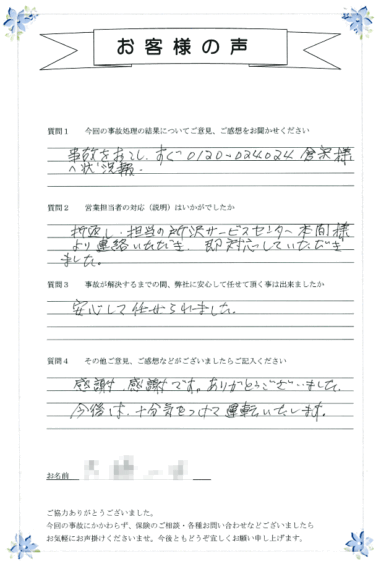 お客様の声
質問1 今回の事故処理の結果についてご意見、ご感想をお聞かせください
事故をおこし、すぐ 0120-024024 倉泉様
へ状況報。
質問2 営業担当者の対応(説明)はいかがでしたか
折返し・担当の所沢サービスセンター本間様
より連絡いただき、即対応していただき
ました。
質問3 事故が解決するまでの間、弊社に安心して任せて頂く事は出来ましたか
安心して任せられました。
質問4 その他ご意見、ご感想などがございましたらご記入ください
感謝、感謝です。ありがとうございました。
今後は、十分気をつけて運転いたします。
お名前
ご協力ありがとうございました。
今回の事故にかかわらず、保険のご相談・各種お問い合わせなどございましたら
お気軽にお声掛けくださいませ。今後ともどうぞ宜しくお願い申し上げます。